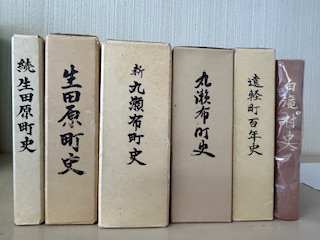 続 生田原町史
生田原町史
新 丸瀬布町史
丸瀬布町史
遠軽町百年史
白滝村史